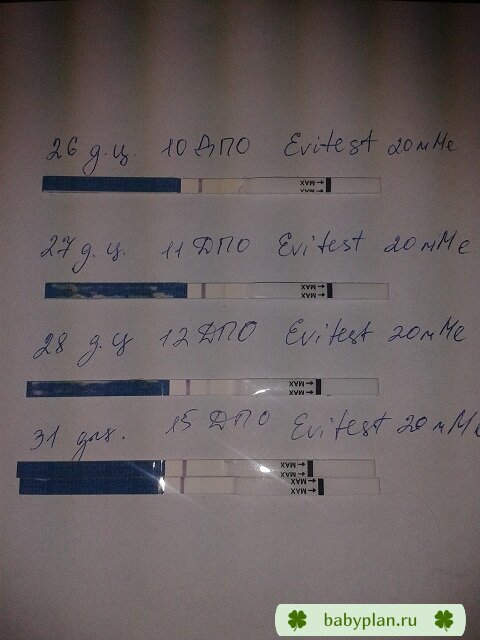 26 д.ц. 10 ДПО Evitest 20 мМе
MAX
MAX
27 д.ц. 11 ДПО Evitest 20 мМе
MAX
MAX
28 д.ц 12 ДПО Evitest 20 мМе
MAX
MAX
31 15 ДПО Evitest 20 мМе
MAX
MAX
MAX
MAX
babyplan.ru